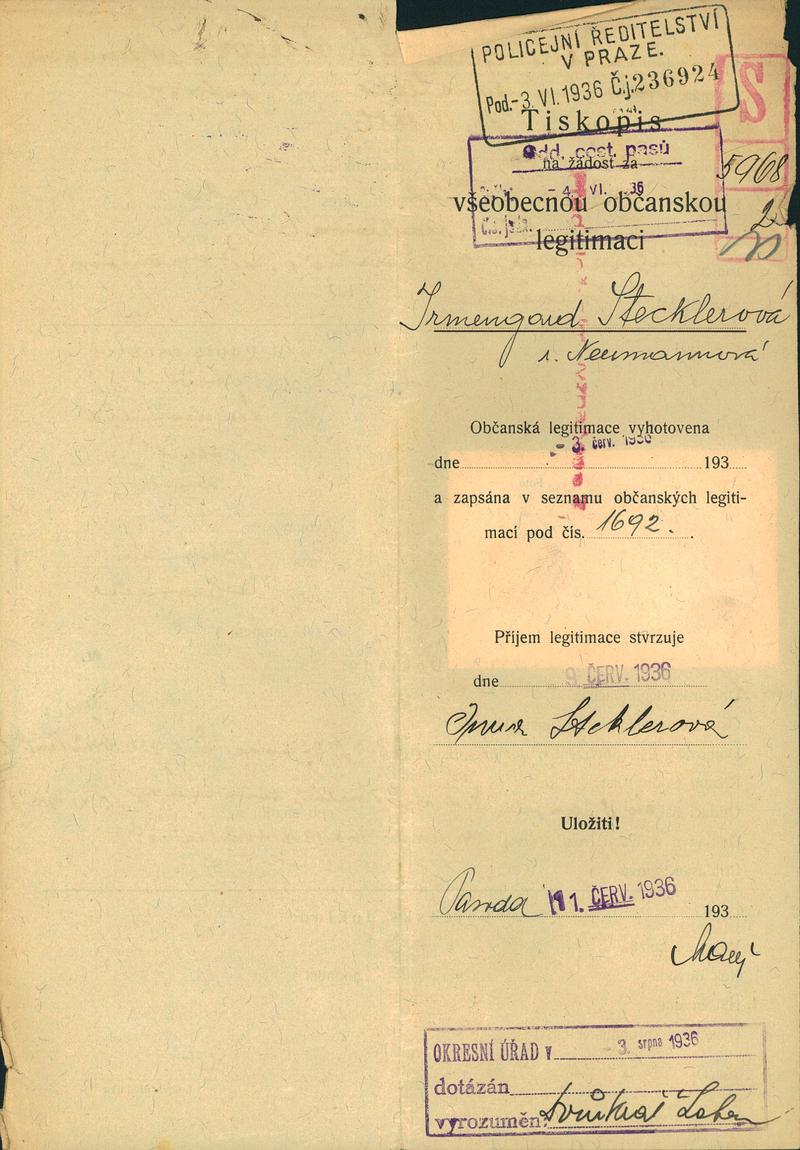 POLICEJNÍ ŘEDITELSTVÍ
V PRAZE.
Pod.-3. VI. 1936 Č.j. 236924
S
Tiskopis
Odd. cest. pasů
na žádost za
5968
- 4. VI. 36
2
všeobecnou občanskou
Čís. jedn.
legitimaci
Irmengard Stecklerová
r. Neumannová
Občanská legitimace vyhotovena
- 3. červ. 1936
dne 193
a zapsána v seznamu občanských legiti-
mací pod čís. 1692.
Příjem legitimace stvrzuje
dne 9. ČERV. 1936
Irma Stecklerová
Uložiti!
11. ČERV. 1936 193
OKRESNÍ ÚŘAD v - 3. srpna 1936
dotázán
vyrozuměn: